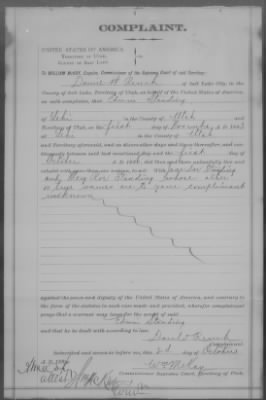 COMPLAINT.
UNITED STATES OF AMERICA,
TERRITORY OF UTAH,
COUNTY OF SALT LAKE.
To WILLIAM McKAY, Esquire, Commissioner of the Supreme Court of said Territory:
of Salt Lake City, in the
County of Salt Lake, Territory of Utah, on behalf of the United States of America,
on oath complains, that Edwin Standing
of Lehi in the County of Utah and
Territory of Utah, on the first day of A. D. 188
at Lehi in the County of Utah
and Territory aforesaid, and on divers other days and times thereafter, and con-
tinuously between said last mentioned day and the first day of
October A. D. 188 , did then and there unlawfully live and
cohabit with more than one woman, to wit: with
Standing whose other
names are to your complainant
unknown
against the peace and dignity of the United States of America, and contrary to
the form of the statutes in such case made and provided, wherefore complainant
prays that a warrant may issue for the arrest of the said
Edwin Standing
and that he be dealt with according to law.
Complainant.
Subscribed and sworn to before me, this 2d day of October
A. D. 188
Wm McKay
Commissioner Supreme Court, Territory of Utah.